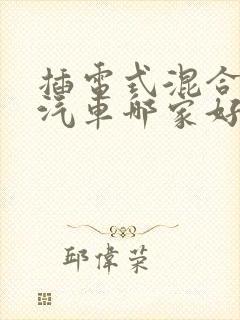 插电式混合
汽车哪家好
邱偉荣